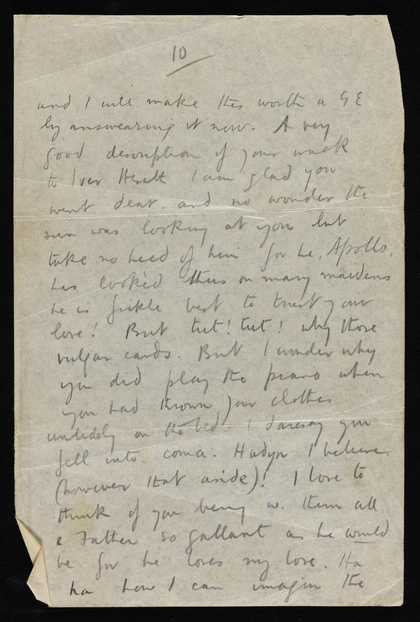 10
and I will make this worth a G E
by answearing it now. A very
good description of your walk
to Iver Heath I am glad you
went dear. and no wonder the
sun was looking at you but
take no heed of him for he, Apollo
has looked thus on many maidens
he is fickle best to trust your
love! But tut! tut! why those
vulgar cards. But I wonder why
you did play the piano when
you had thrown your clothes
untidely on the bed. I daresay you
fell into coma. I believe
(however that aside)! I love to
think of you being w. them all
& Father so gallant as he would
be for he loves my love. Ha
ha how I can imagin the